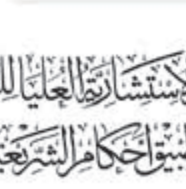 الاستشارية العليا لل
تطبيق أحكام الشريعة